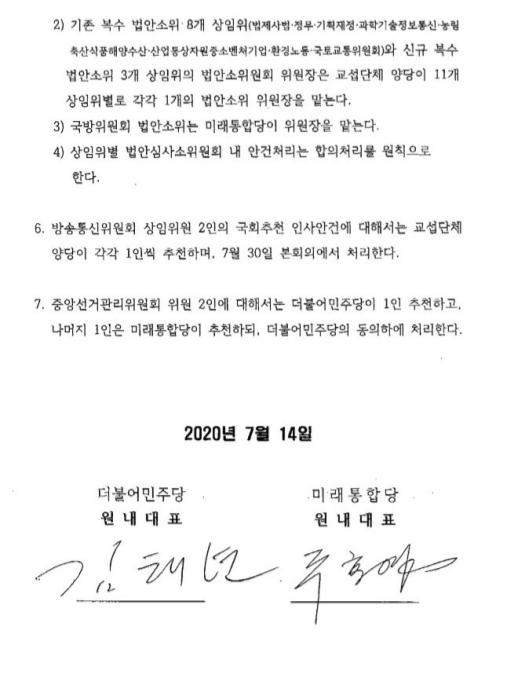 2) 기존 복수 법안소위 8개 상임위(법제사법·정무·기획재정·과학기술정보통신·농림
축산식품해양수산·산업통상자원중소벤처기업·환경노동·국토교통위원회)와 신규 복수
법안소위 3개 상임위의 법안소위원회 위원장은 교섭단체 양당이 11개
상임위별로 각각 1개의 법안소위 위원장을 맡는다.
3) 국방위원회 법안소위는 미래통합당이 위원장을 맡는다.
4) 상임위별 법안심사소위원회 내 안건처리는 합의처리를 원칙으로
한다.
6. 방송통신위원회 상임위원 2인의 국회추천 인사안건에 대해서는 교섭단체
양당이 각각 1인씩 추천하며, 7월 30일 본회의에서 처리한다.
7. 중앙선거관리위원회 위원 2인에 대해서는 더불어민주당이 1인 추천하고,
나머지 1인은 미래통합당이 추천하되, 더불어민주당의 동의하에 처리한다.
2020년 7월 14일
더불어민주당 미래통합당
원내대표 원내대표
김태년 주호영